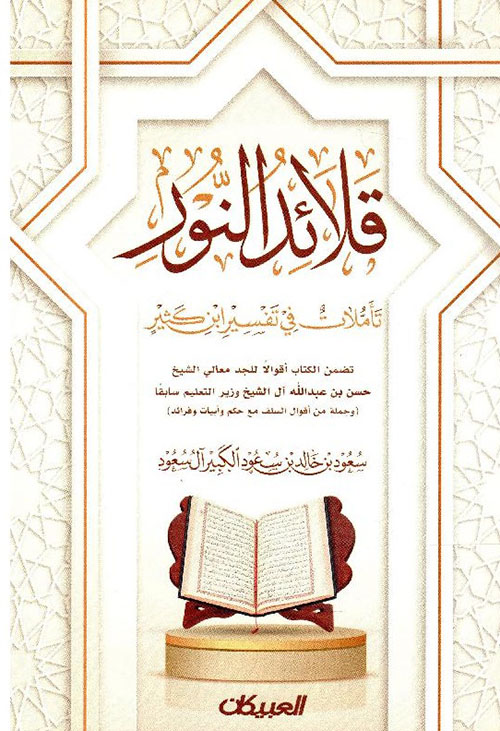 قلائد النُّور
تأملاتٌ في تفسير ابن كثير
تضمن الكتاب أقوالاً للجد معالي الشيخ
حسن بن عبدالله آل الشيخ وزير التعليم سابقًا
(وجملة من أقوال السلف مع حكم وأبيات وفرائد)
سعود بن خالد بن سعود الكبير آل سعود
العبيكان